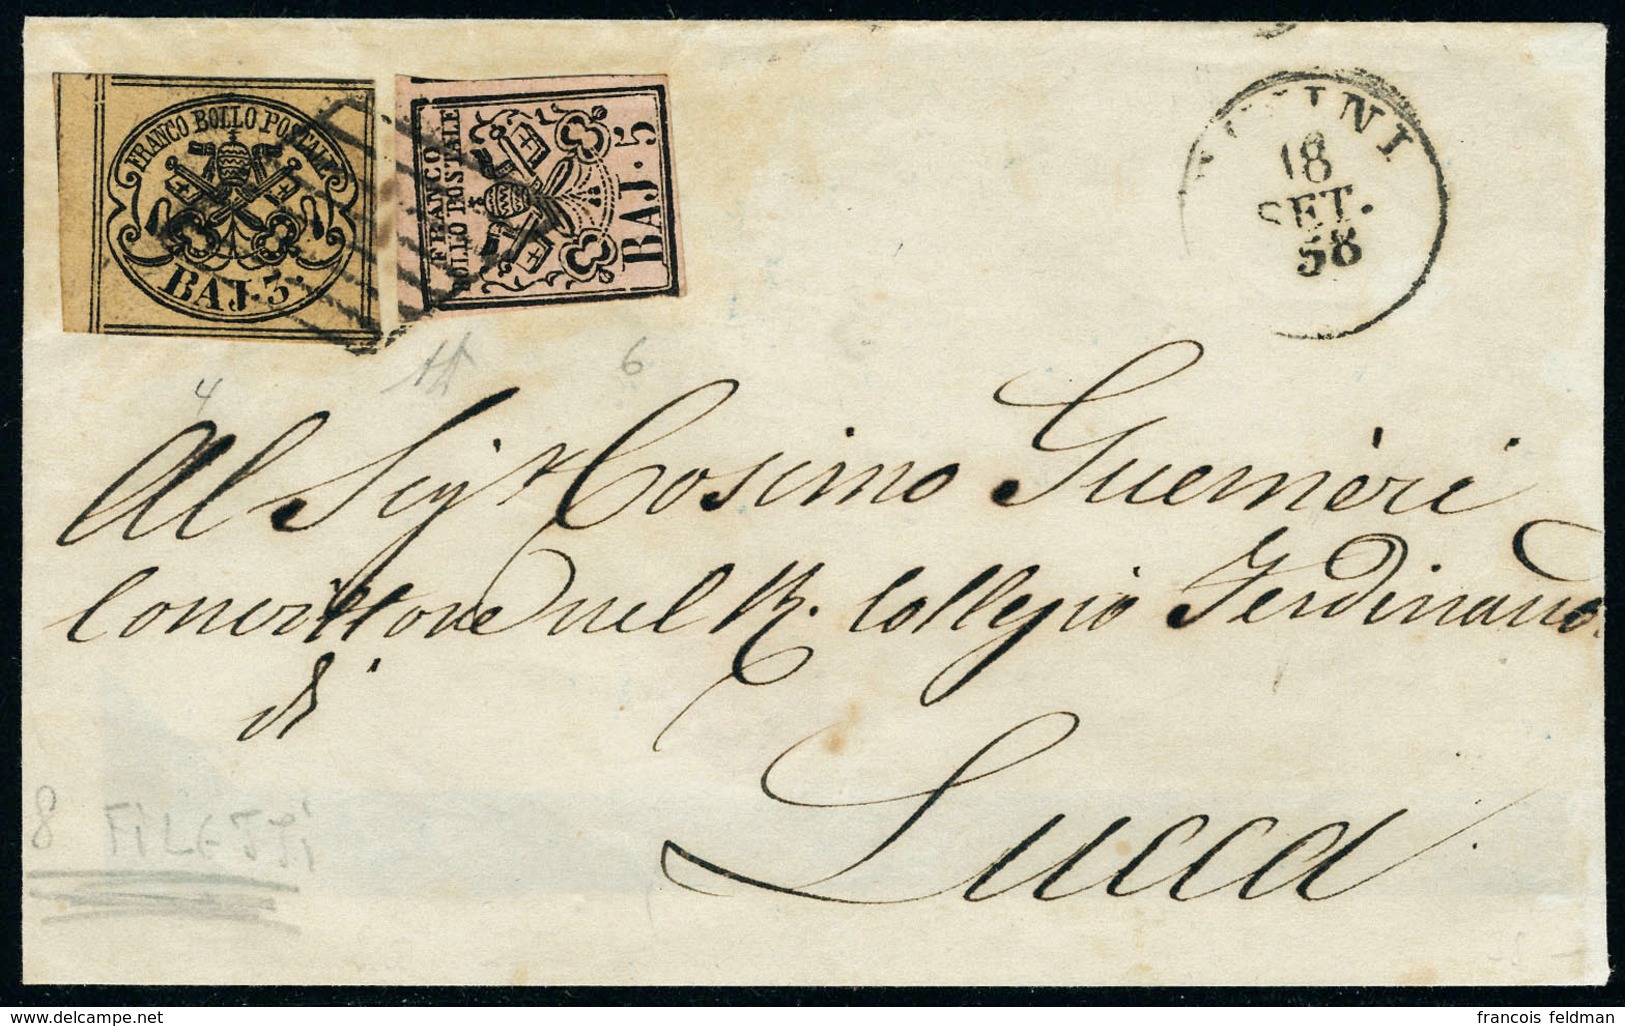 FRANCO BOLLO POSTALE
BAJ. 3.
FRANCO
BOLLO POSTALE
BAJ. 5
RIMINI
18
SET.
58
4
6
Al Sigr Cosimo Guernièri
Convittore nel R. Collegio Ferdinando
di
Lucca
8 FILETTI
www.delcampe.net
francois feldman